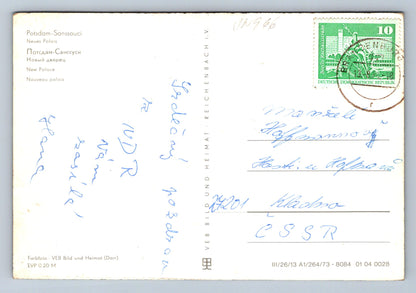 Potsdam-Sanssouci
Neues Palais
Потсдам-Сансуси
Новый дворец
New Palace
Nouveau palais
10
DEUTSCHE DEMOKRATISCHE REPUBLIK
VEB BILD UND HEIMAT REICHENBACH i.V.
Srdečný pozdrav
ze
NDR
Vám
zasílá
Hana
Manželé
Hoffmannovi
27201
Kladno
ČSSR
Farbfoto: VEB Bild und Heimat (Darr)
EVP 0,20 M
III/26/13 A1/264/73 - 8084 01 04 0028